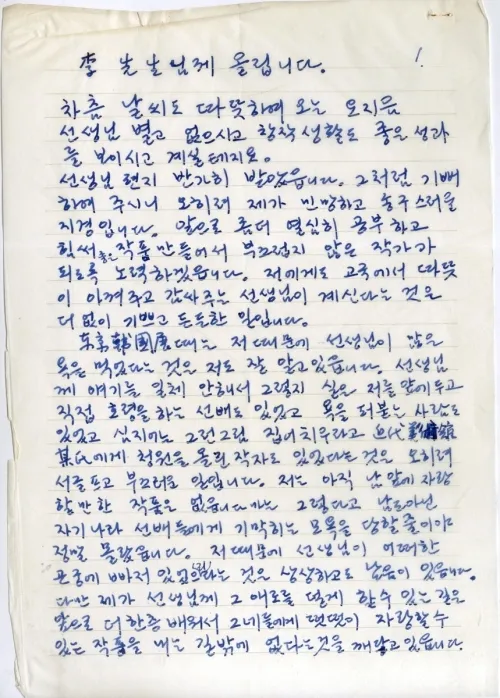 李 선생님께 올립니다. 1.
차츰 날씨도 따뜻하여 오는 요지음
선생님 별고 없으시고 창작생활도 좋은 성과
를 보이시고 계실테지요.
선생님 편지 반가히 받았읍니다. 그처럼 기뻐
하여 주시니 오히려 제가 민망하고 송구스러울
지경입니다. 앞으로 좀더 열심히 공부하고
힘써 좋은 작품 만들어서 부끄럽지 않은 작가가
되도록 노력하겠읍니다. 저에게도 고국에서 따뜻
이 아껴주고 감싸주는 선생님이 계신다는 것은
더없이 기쁘고 든든한 일입니다.
東京韓國展때는 저때문에 선생님이 많은
욕을 먹었다는 것은 저도 잘 알고있읍니다. 선생님
께 얘기를 일체 안해서 그렇지 실은 저를 앞에두고
직접 호령을 하는 선배도 있었고 욕을 퍼붓는 사람도
있었고 심지어는 그런그림 집어치우라고 近代美術館
某氏에게 청원을 올린 작자도 있었다는 것은 오히려
서글프고 부끄러운 일입니다. 저는 아직 남앞에 자랑
할만한 작품은 없읍니다마는 그렇다고 남도아닌
자기나라 선배들에게 기막히는 모욕을 당할줄이야
정말 몰랐읍니다. 저때문에 선생님이 어떠한
곤궁에 빠져 있었으리라는 것은 상상하고도 남음이 있읍니다.
다만 제가 선생님께 그 애로를 덜게 할수 있는 길은
앞으로 더한층 배워서 그네들에게 떳떳이 자랑할수
있는 작품을 내는 길밖에 없다는것을 깨닫고 있읍니다.